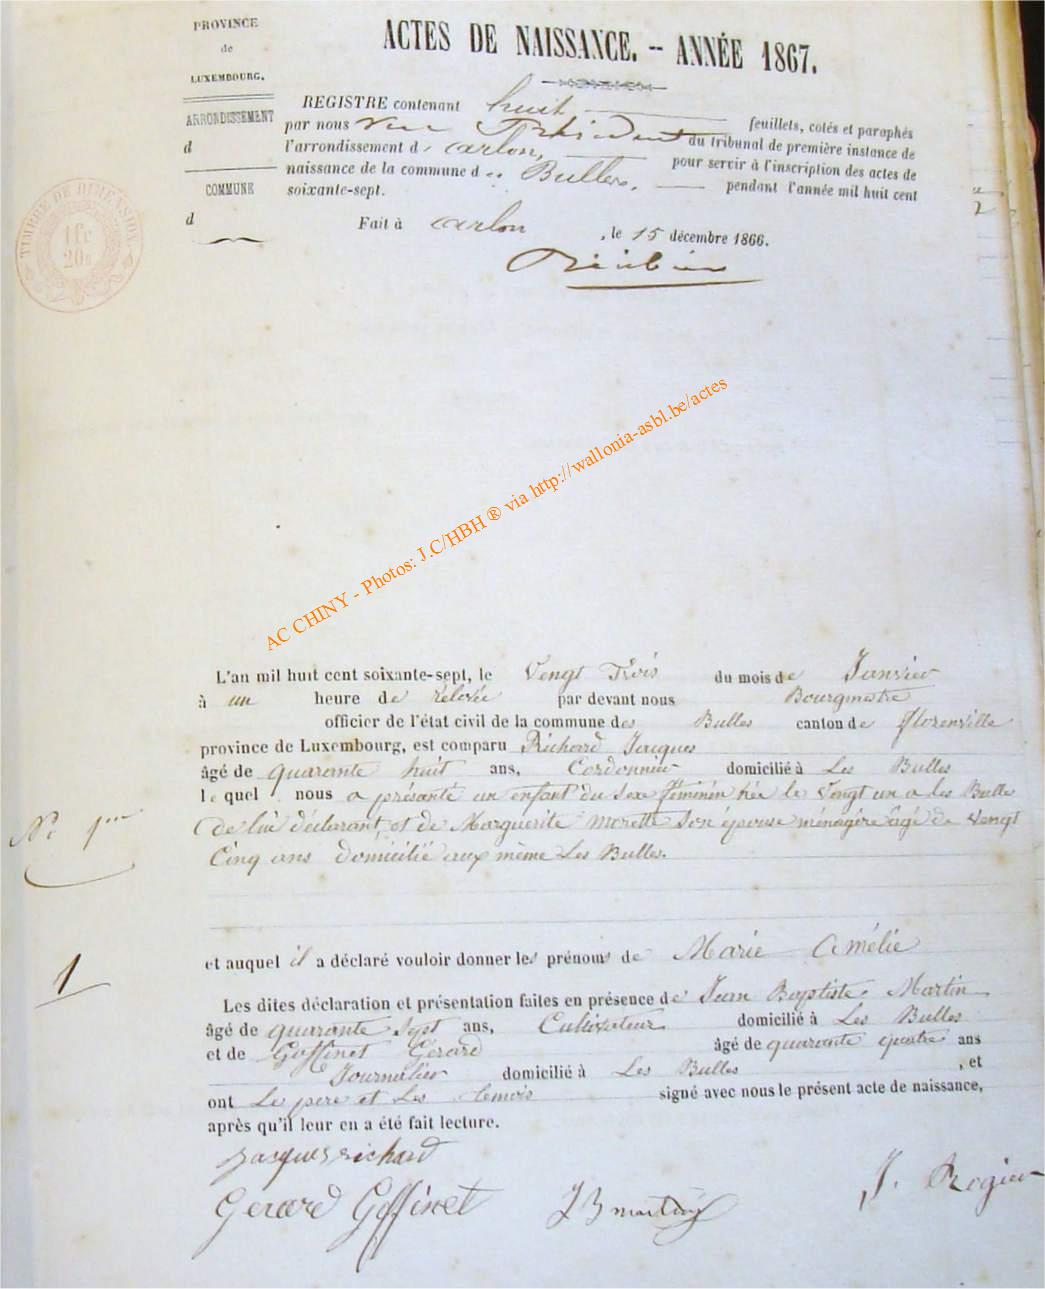 PROVINCE
de
LUXEMBOURG.
ARRONDISSEMENT
d
COMMUNE
d
TIMBRE DE DIMENSION.
1 fr
20c
ACTES DE NAISSANCE. -- ANNÉE 1867.
REGISTRE contenant huit feuillets, cotés et paraphés
par nous du tribunal de première instance de
l'arrondissement d'arlon, pour servir à l'inscription des actes de
naissance de la commune des Bulles. pendant l'année mil huit cent
soixante-sept.
Fait à arlon, le 15 décembre 1866.
AC CHINY - Photos: J.C/HBH ® via http://wallonia-asbl.be/actes
L'an mil huit cent soixante-sept, le Vengt Trois du mois de Janvier
à un heure de rélevée par devant nous Bourgmestre
officier de l'état civil de la commune des Bulles canton de florenville
province de Luxembourg, est comparu Richard Jacques
âgé de quarante huit ans, Cordonnier domicilié à Les Bulles
lequel nous a présanté un enfant du sexe féminin née le Vengt un a les Bulles
N° 1er
de lui déclarant, et de Marguerite Morette son épouse ménagère âgé de Vengt
Cinq ans domicilié aux même Les Bulles.
et auquel il a déclaré vouloir donner les prénoms de Marie Amélie
1
Les dites déclaration et présentation faites en présence de Jean Baptiste Martin
âgé de quarante sept ans, Cultivateur domicilié à Les Bulles
et de Goffinet Gérard âgé de quarante quatre ans
Journalier domicilié à Les Bulles, et
ont Le pere et Les temois signé avec nous le présent acte de naissance,
après qu'il leur en a été fait lecture.
jasques richard
Gerard Goffinet JB martin J. Rogier